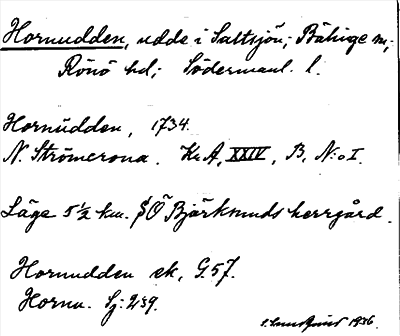 Hornudden, udde i Saltsjön; Bälinge sn;
Rönö hd; Södermanl. l.
Hornudden, 1734.
N. Strömcrona. K.A, XXIV, B, N:o I.
Läge 5 ½ km. SÖ Björksunds herrgård.
Hornudden ek, G.57.
Hornu. Sj: 239.
1936.